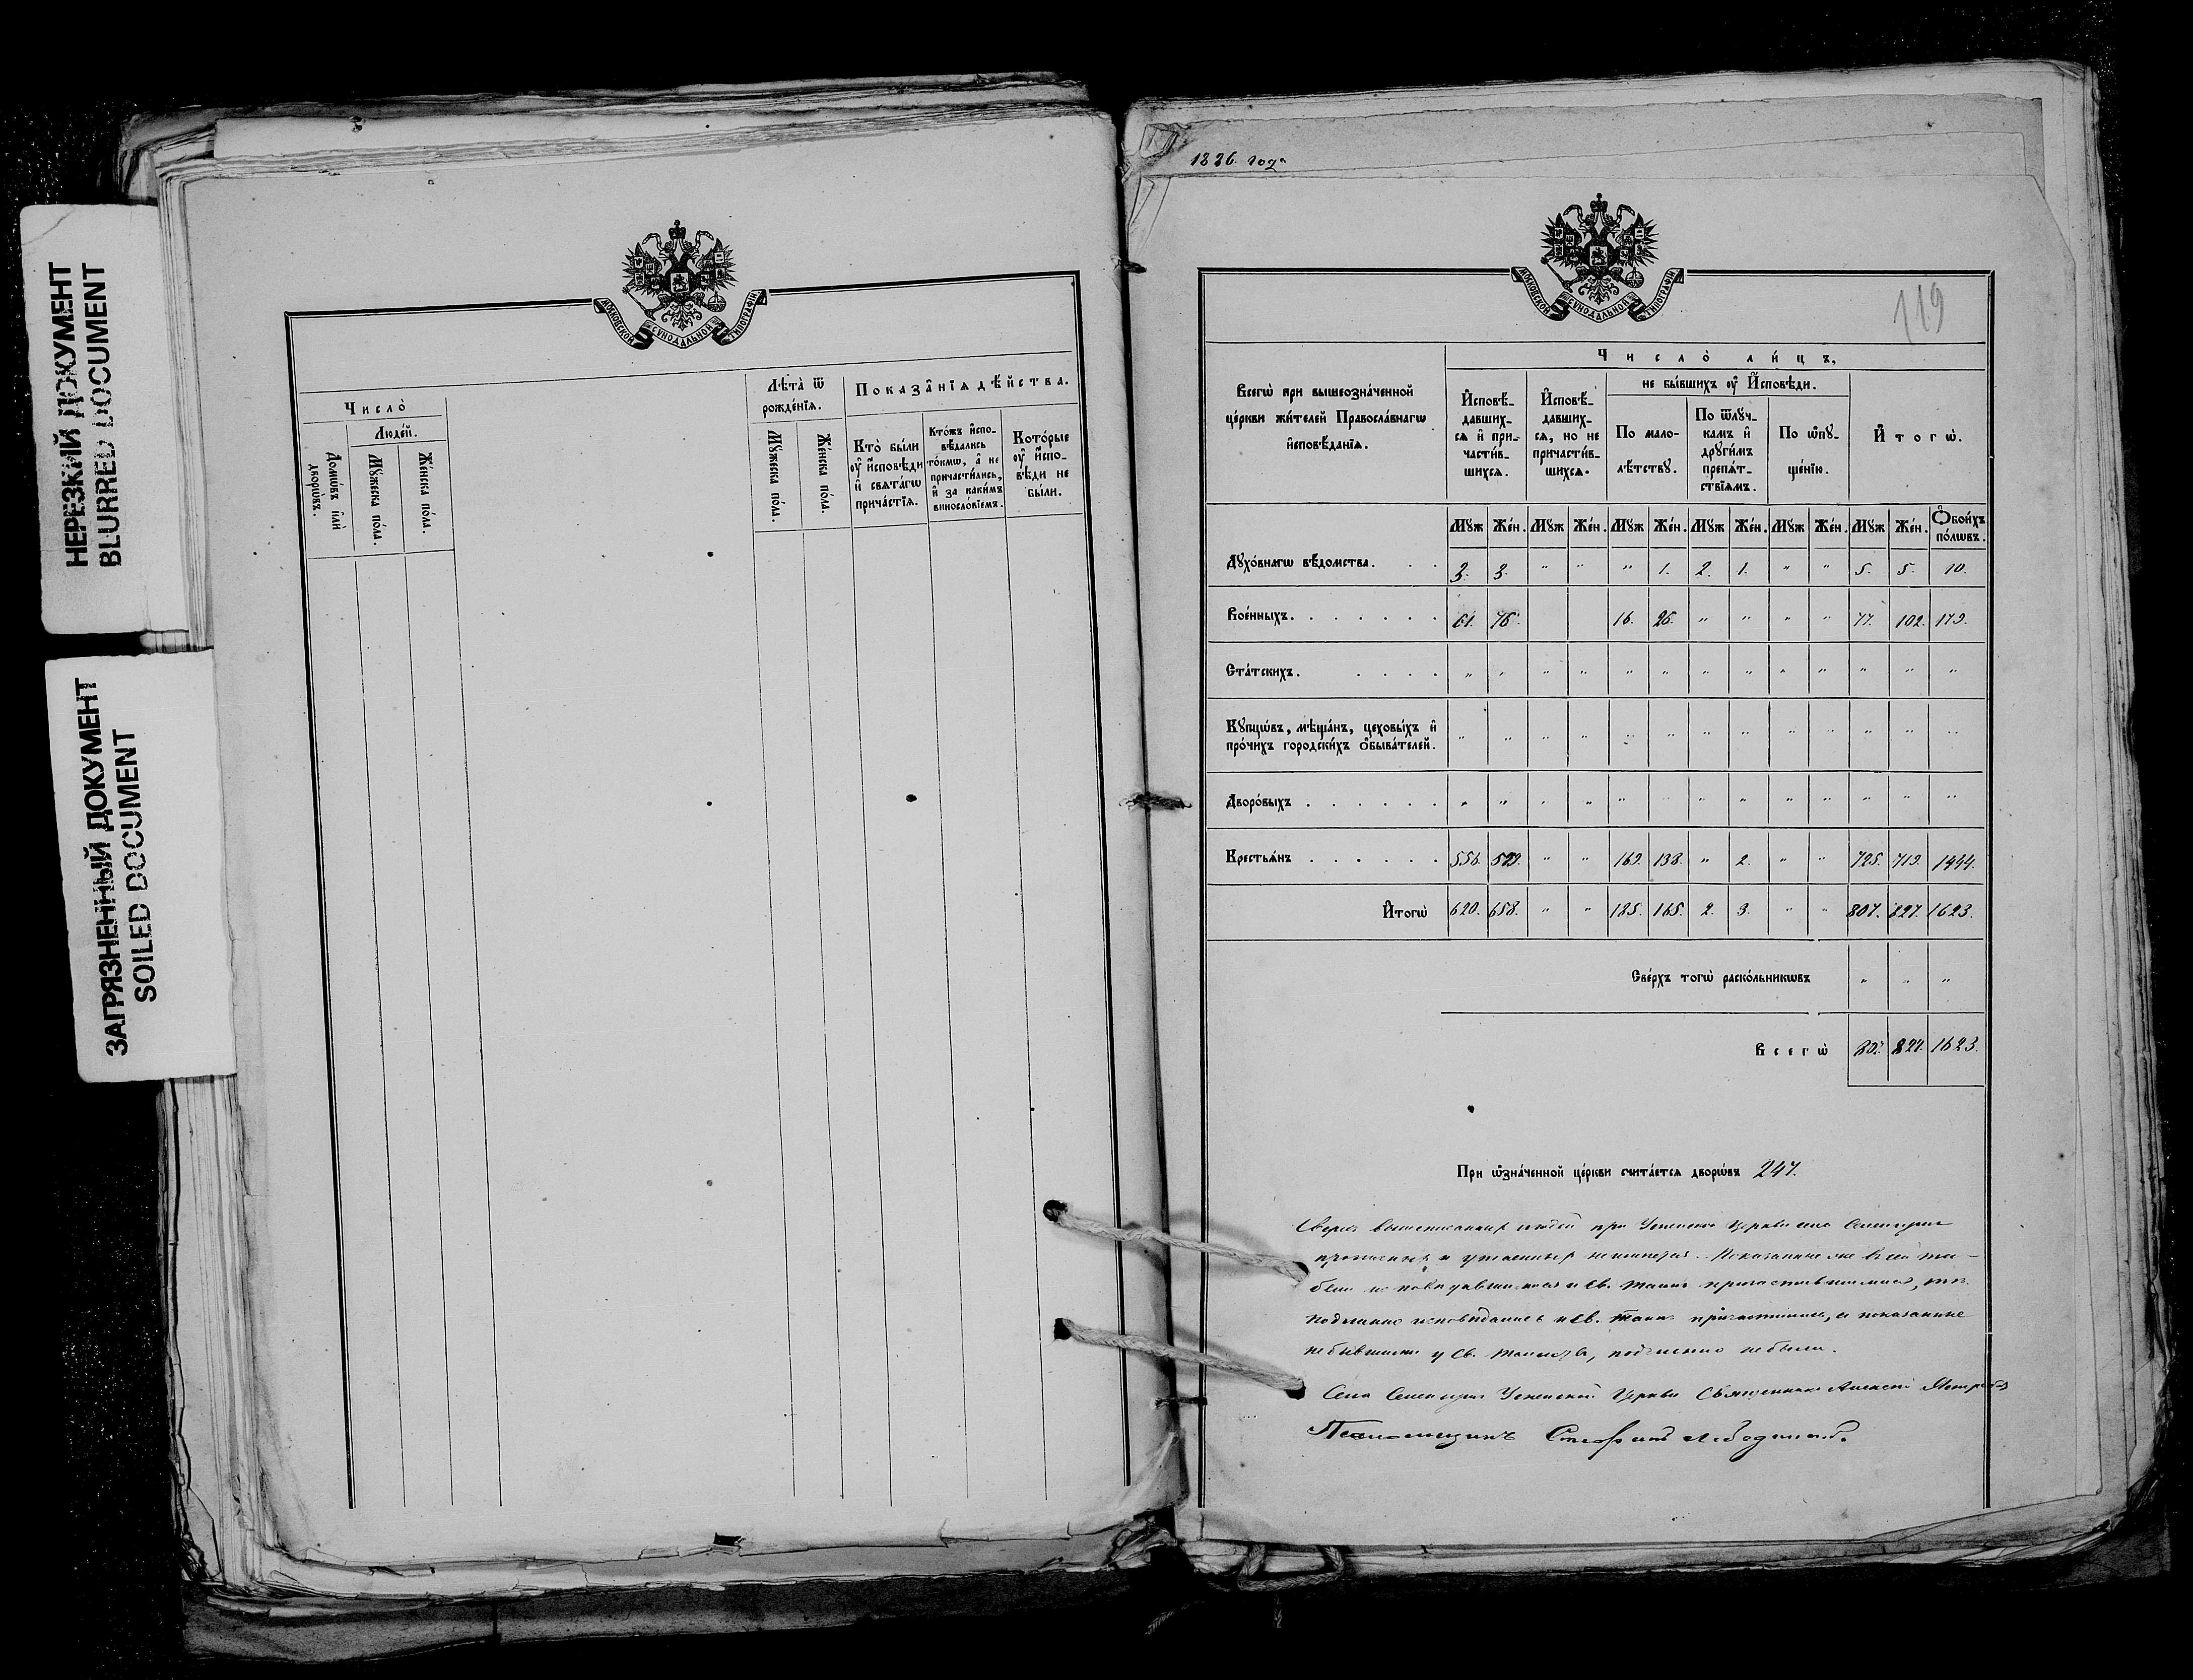 НЕРЕЗКИЙ ДОКУМЕНТ
BLURRED DOCUMENT
ЗАГРЯЗНЕННЫЙ ДОКУМЕНТ
SOILED DOCUMENT
МОСКОВСКОЙ СѴНОДАЛЬНОЙ ТИПОГРАФІИ
Число̀
Людє́й.
Домѡ́въ и҆лѝ дворѡ́въ.
Мꙋ́жеска по́ла.
Же́нска по́ла.
Лѣ́та ѿ рожде́нїѧ.
Мꙋ́жеска по́ла.
Же́нска по́ла.
Показа̑нїѧ дѣ́йства.
Кто̀ бы́ли
ᲂу҆ И҆́сповѣди
и҆ свѧта́гѡ
прича́стїѧ.
Кто́жъ и҆спо-
вѣ́дались
то́кмѡ, а҆ не
причасти́лись,
и҆ за каки́мъ
винносло́вїемъ.
Кото́рые
ᲂу҆ И҆́спо-
вѣди не
бы́ли.
1886. года
МОСКОВСКОЙ СѴНОДАЛЬНОЙ ТИПОГРАФІИ
119
Всегѡ̀ при вышеозна́ченной
це́ркви жи́телей Правосла́внагѡ
и҆сповѣ́данїѧ.
Число̀ ли́цъ,
И҆сповѣ́-
давших-
сѧ и҆ при-
части́в-
шихсѧ.
И҆сповѣ́-
давших-
сѧ, но не
причасти́в-
шихсѧ.
не бы́вшихъ ᲂу҆ И҆́сповѣди.
По мало-
лѣ́тствꙋ.
По ѿлꙋ́ч-
камъ и҆
дрꙋги́мъ
препѧ́т-
ствїѧмъ.
По ѡ҆пꙋ-
ще́нїю.
И҆тогѡ̀.
Мꙋж Же́н. Мꙋж Же́н. Мꙋж Же́н. Мꙋж Же́н. Мꙋж Же́н. Мꙋж Же́н. Ѻ҆бои́хъ по́лѡвъ.
Дꙋхо́внагѡ вѣ́домства. . . 3. 3. " " " 1. 2. 1. " " 5. 5. 10.
Вое́нныхъ. . . . . . . 61. 76. 16. 26. " " " " 77. 102. 179.
Ста́тскихъ. . . . . " " " " " " " " " " " " "
Кꙋпцѡ́въ, мѣща́нъ, цеховы́хъ и҆
про́чихъ городски́хъ ѻ҆быва́телей. " " " " " " " " " " " " "
Дворо́выхъ . . . . . . " " " " " " " " " " " "
Крестьѧ́нъ . . . . . . 556. 579. " " 169. 138. " 2. " " 725. 719. 1444.
И҆тогѡ̀ 620. 658. " " 185. 165. 2. 3. " " 807. 827. 1623.
Све́рхъ тогѡ̀ раско́льникѡвъ " " "
Всегѡ̀ 807. 827. 1623.
При ѡ҆зна́ченной це́ркви счита́етсѧ дворѡ́въ 247.
Сверхъ вышеписанныхъ людей при Успенской Церкви села
прописныхъ и утаенныхъ неимеется. Показанные же в сей та-
бели исповедавшимися и Св. Таинъ причастившимися, те
подлинно исповедались и Св. Таинъ причастились, а показанные
небывшими у Св. Таинства, подлинно небыли.
Села Успенской Церкви Священникъ Алексей
Псаломщикъ